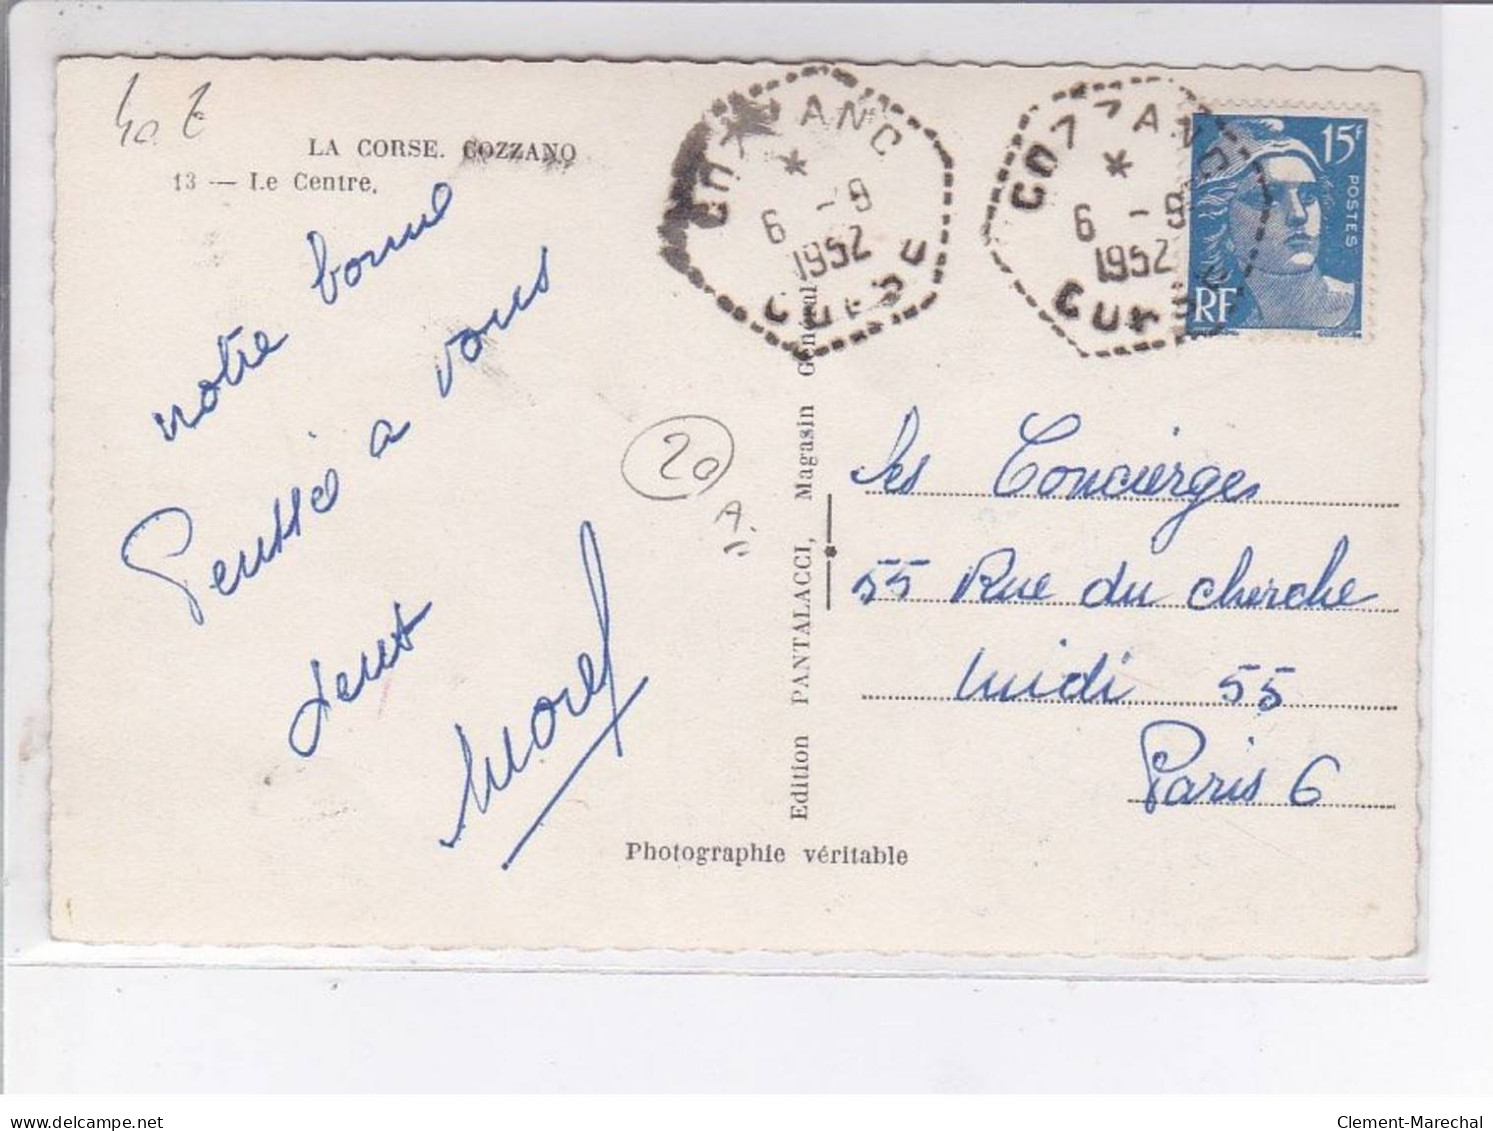 40 €
LA CORSE. COZZANO
13 — Le Centre.
notre bonne
Pensée a vous
tous
Morel
20
A.
Edition PANTALACCI, Magasin Général
Photographie véritable
COZZANO
*
6 -9
1952
CORSE
COZZANO
*
6 -9
1952
CORSE
15F
POSTES
RF
les Concierges
55 Rue du cherche
midi 55
Paris 6
Clement-Marechal
delcampe.net